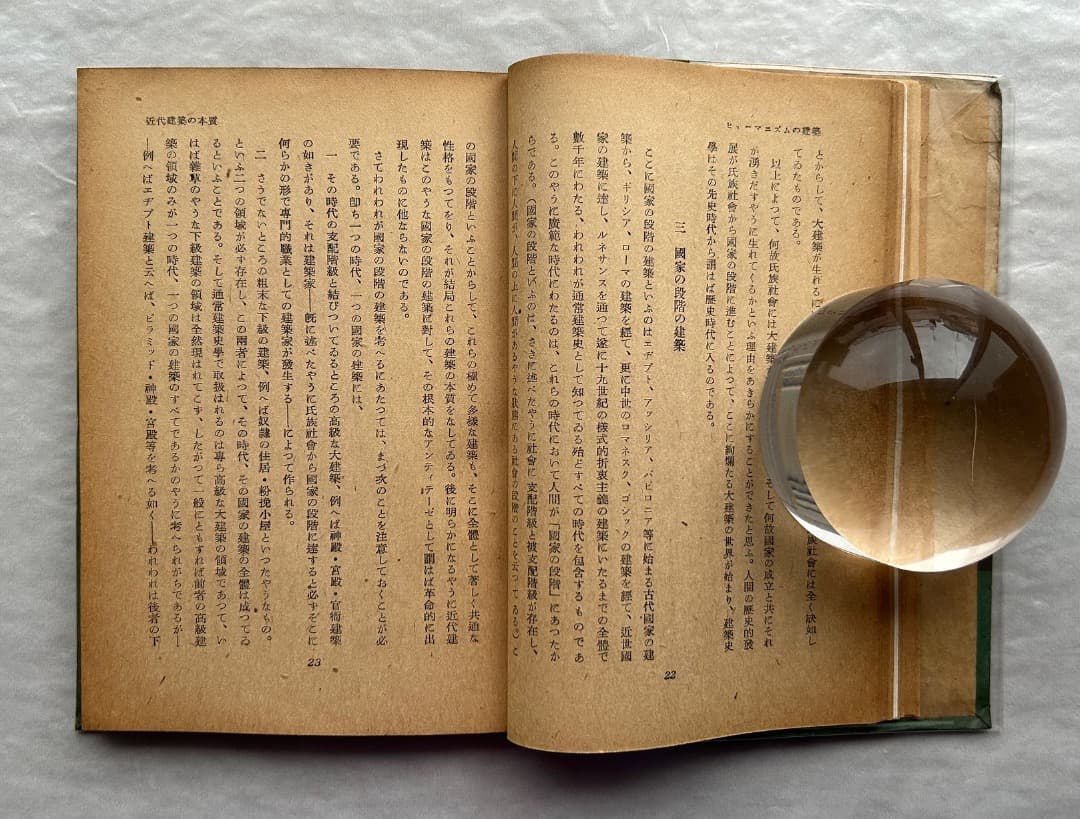 ヒューマニズムの建築
とからして、大建築が生れるに
族社會には全く缺如し
てゐたものである。
以上によつて、何故氏族社會には大建築
そして何故國家の成立と共にそれ
が湧きだすやうに生れてくるかといふ理由をあきらかにすることができたと思ふ。人間の歷史的發
展が氏族社會から國家の段階に進むことによつて、ここに絢爛たる大建築の世界が始まり、建築史
學はその先史時代から謂はば歷史時代に入るのである。
三　國家の段階の建築
ここに國家の段階の建築といふのはエヂプト、アッシリア、バビロニア等に始まる古代國家の建
築から、ギリシア、ローマの建築を經て、更に中世のロマネスク、ゴシックの建築を經て、近世國
家の建築に達し、ルネサンスを通つて遂に十九世紀の樣式的折衷主義の建築にいたるまでの全體で
數千年にわたる、われわれが通常建築史として知つてゐる殆どすべての時代を包含するものであ
る。このやうに廣範な時代にわたるのは、これらの時代において人間が「國家の段階」にあつたか
らである。（國家の段階といふのは、さきに述べたやうに社會に支配階級と被支配階級が存在し、
人間の下に人間が、人間の上に人間があるやうな狀態にある社會の段階のことを云つてゐる。）こ
22
近代建築の本質
の國家の段階といふことからして、これらの極めて多樣な建築も、そこに全體として著しく共通な
性格をもつてをり、それが結局これらの建築の本質をなしてゐる。後に明らかになるやうに近代建
築はこのやうな國家の段階の建築に對して、その根本的なアンティテーゼとして謂はば革命的に出
現したものに他ならないのである。
さてわれわれが國家の段階の建築を考へるにあたつては、まづ次のことを注意しておくことが必
要である。卽ち一つの時代、一つの國家の建築には、
一　その時代の支配階級と結びついてゐるところの高級な大建築、例へば神殿・宮殿・官衙建築
の如きがあり、それは建築家――旣に述べたやうに氏族社會から國家の段階に達すると必ずそこに
何らかの形で專門的職業としての建築家が發生する――によつて作られる。
二　さうでないところの粗末な下級の建築、例へば奴隸の住居・粉挽小屋といつたやうなもの。
といふ二つの領域が必ず存在し、この兩者によつて、その時代、その國家の建築の全體は成つてゐ
るといふことである。そして通常建築史學で取扱はれるのは專ら高級な大建築の領域であつて、い
はば雜草のやうな下級建築の領域は全然現はれてこず、したがつて一般にともすれば前者の高級建
築の領域のみが一つの時代、一つの國家の建築のすべてであるかのやうに考へられがちであるが―
―例へばエヂプト建築と云へば、ピラミッド・神殿・宮殿等を考へる如く――われわれは後者の下
23